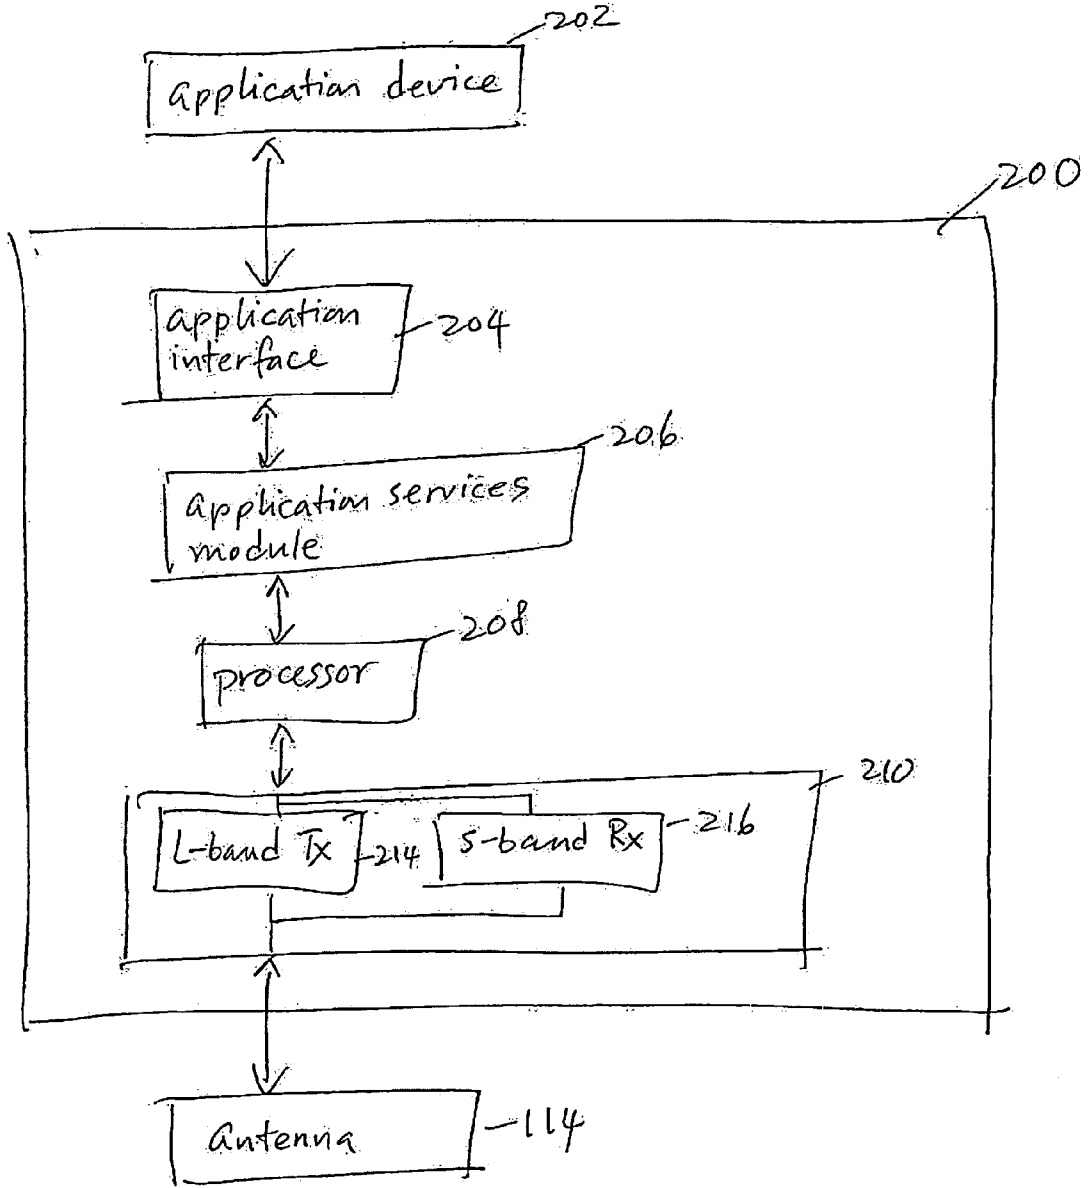 202
application device
200
application
interface
204
206
application services
module
208
processor
210
L-band Tx
214
s-band Rx
216
antenna
114